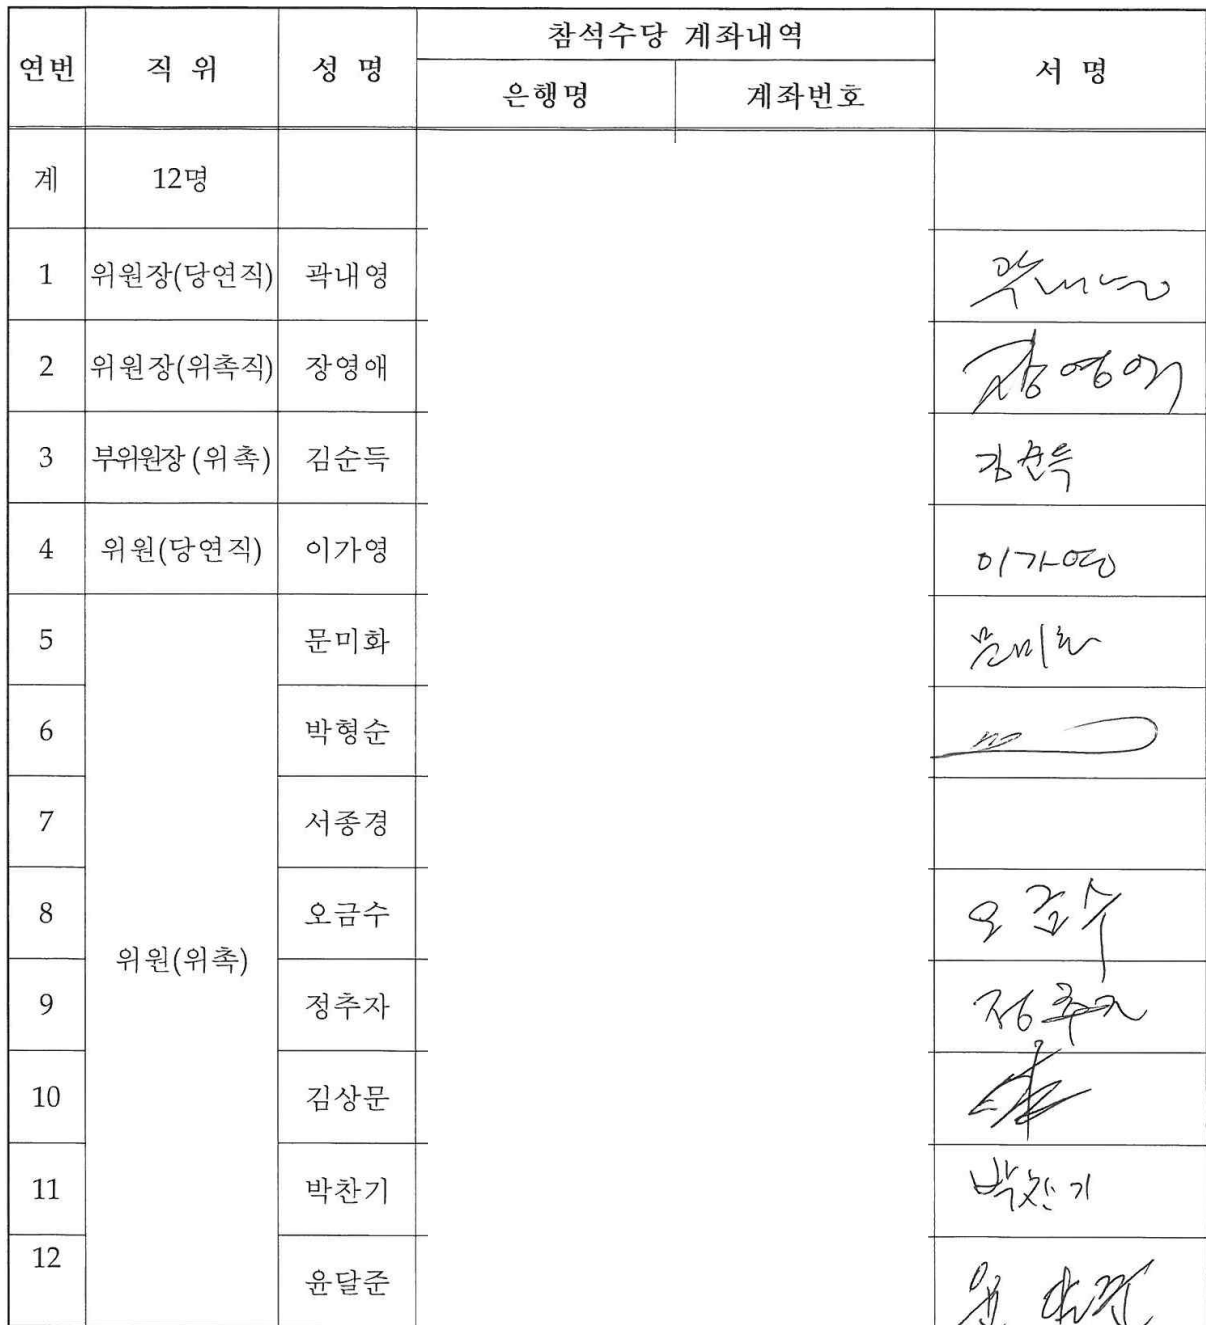 연번 직 위 성 명 참석수당 계좌내역 서 명
은행명 계좌번호
계 12명
1 위원장(당연직) 곽내영 곽내영
2 위원장(위촉직) 장영애 장영애
3 부위원장 (위촉) 김순득 김순득
4 위원(당연직) 이가영 이가영
5 문미화 문미화
6 박형순
7 서종경
8 오금수 오금수
위원(위촉)
9 정추자 정추자
10 김상문
11 박찬기 박찬기
12 윤달준 윤달준